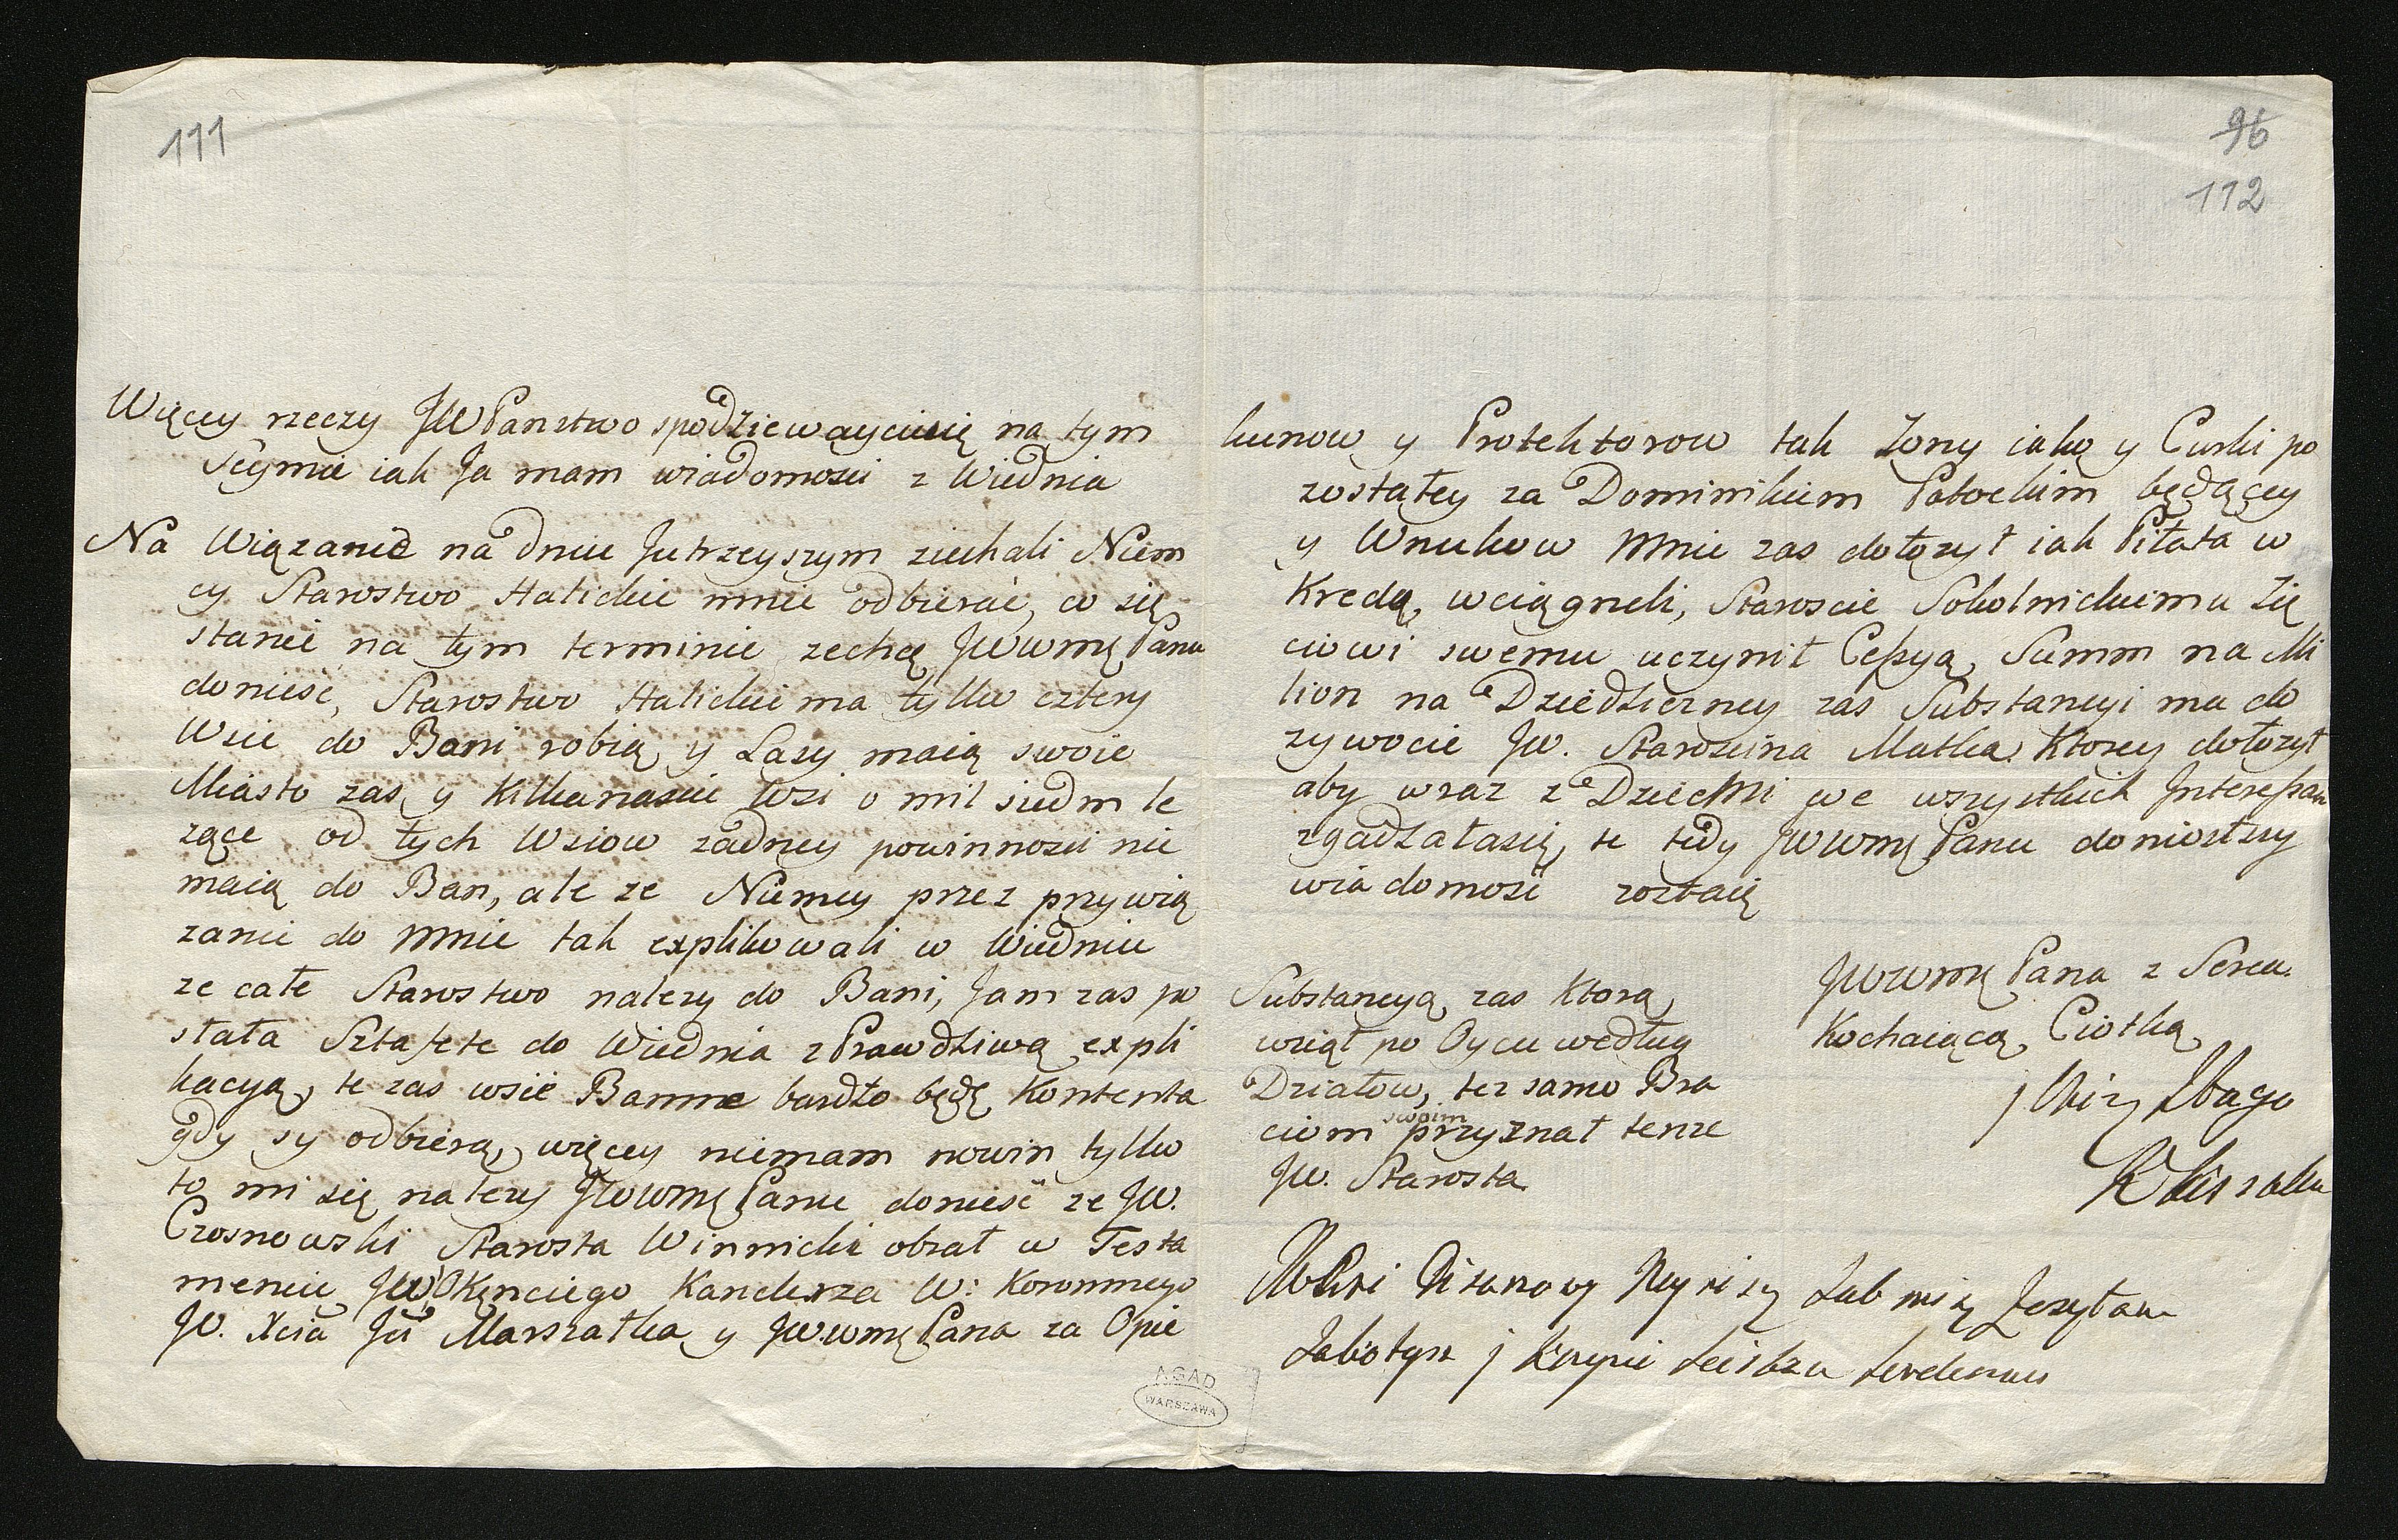 111
Więcey rzeczy JW Panstwo spodziewaycieśię na tym
Seymie iak Ja mam wiadomosci z Wiednia
Na Wiązanie na dniu Jutrzeyszym ziechali Niem
cy Starostwo Halickie mnie odbierać, co się
stanie na tym terminie zechcę JWWmę Panu
donieść, Starostwo Halickie ma tylko cztery
Wsie do Bani robią y Lasy maią swoie
Miasto zas y Kilkanascie Wsi o mil siedm le
zące od tych Wsiow zadney powinnosci nie
maią do Ban, ale ze Niemcy przez przywią
zanie do mnie tak explikowali w Wiedniu
ze całe Starostwo nalezy do Bani, Jam zas po
słała Sztafete do Wiednia z Prawdziwą expli
kacyą, te zas wsie Banne bardzo będę Kontenta
gdy sy odbiorą, więcey niemam nowin tylko
to mi się nalezy JWWmę Panu donieść ze JW.
Czosnowski Starosta Winnicki obrał w Testa
mencie JW Kęnciego Kanclerza W: Koronnego
JW. Xcia Jći Marszałka y JWWmę Pana za Opie
96
112
kunow y Protektorow tak Zony iako y Curki po
zostałey za Dominikiem Potockim będącey
y Wnukow Mnie zas dołozył iak Piłata w
Kredą, wciągneli, Staroscie Sokolnickiemu Zię
ciowi swemu uczynił Cessyą Summ na Mi
lion na Dziedziczney zas Substancyi ma do
zywocie JW. Starościna Matka, Ktorey dołozył
aby wraz z Dziećmi we wszystkich Interessach
zgadzałasię, te tedy JWWmę Panu doniosłszy
wiadomość zostaię
JWWmę Pana z Serca
Kochaiącą Ciotką
Substancyą zas Ktorą
wziął po Oycu według
Działow, tez samo Bra
ciom swoim przyznał tenze
JW. Starosta